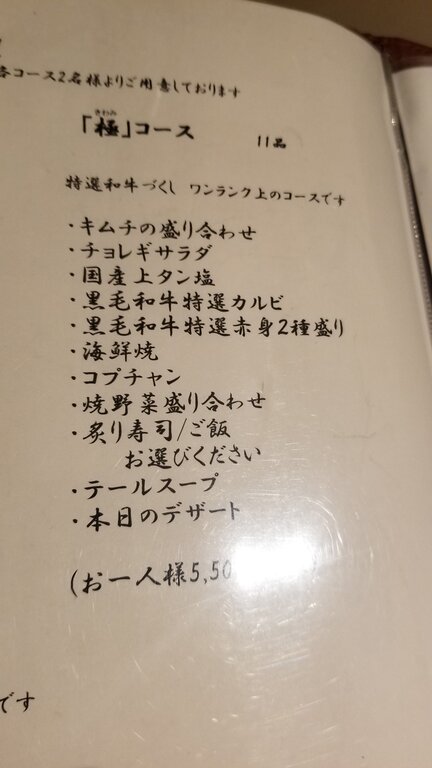 各コース2名様よりご用意しております
きわみ
「極」コース 11品
特選和牛づくし ワンランク上のコースです
・キムチの盛り合わせ
・チョレギサラダ
・国産上タン塩
・黒毛和牛特選カルビ
・黒毛和牛特選赤身2種盛り
・海鮮焼
・コプチャン
・焼野菜盛り合わせ
・炙り寿司/ご飯
お選びください
・テールスープ
・本日のデザート
(お一人様5,50
です